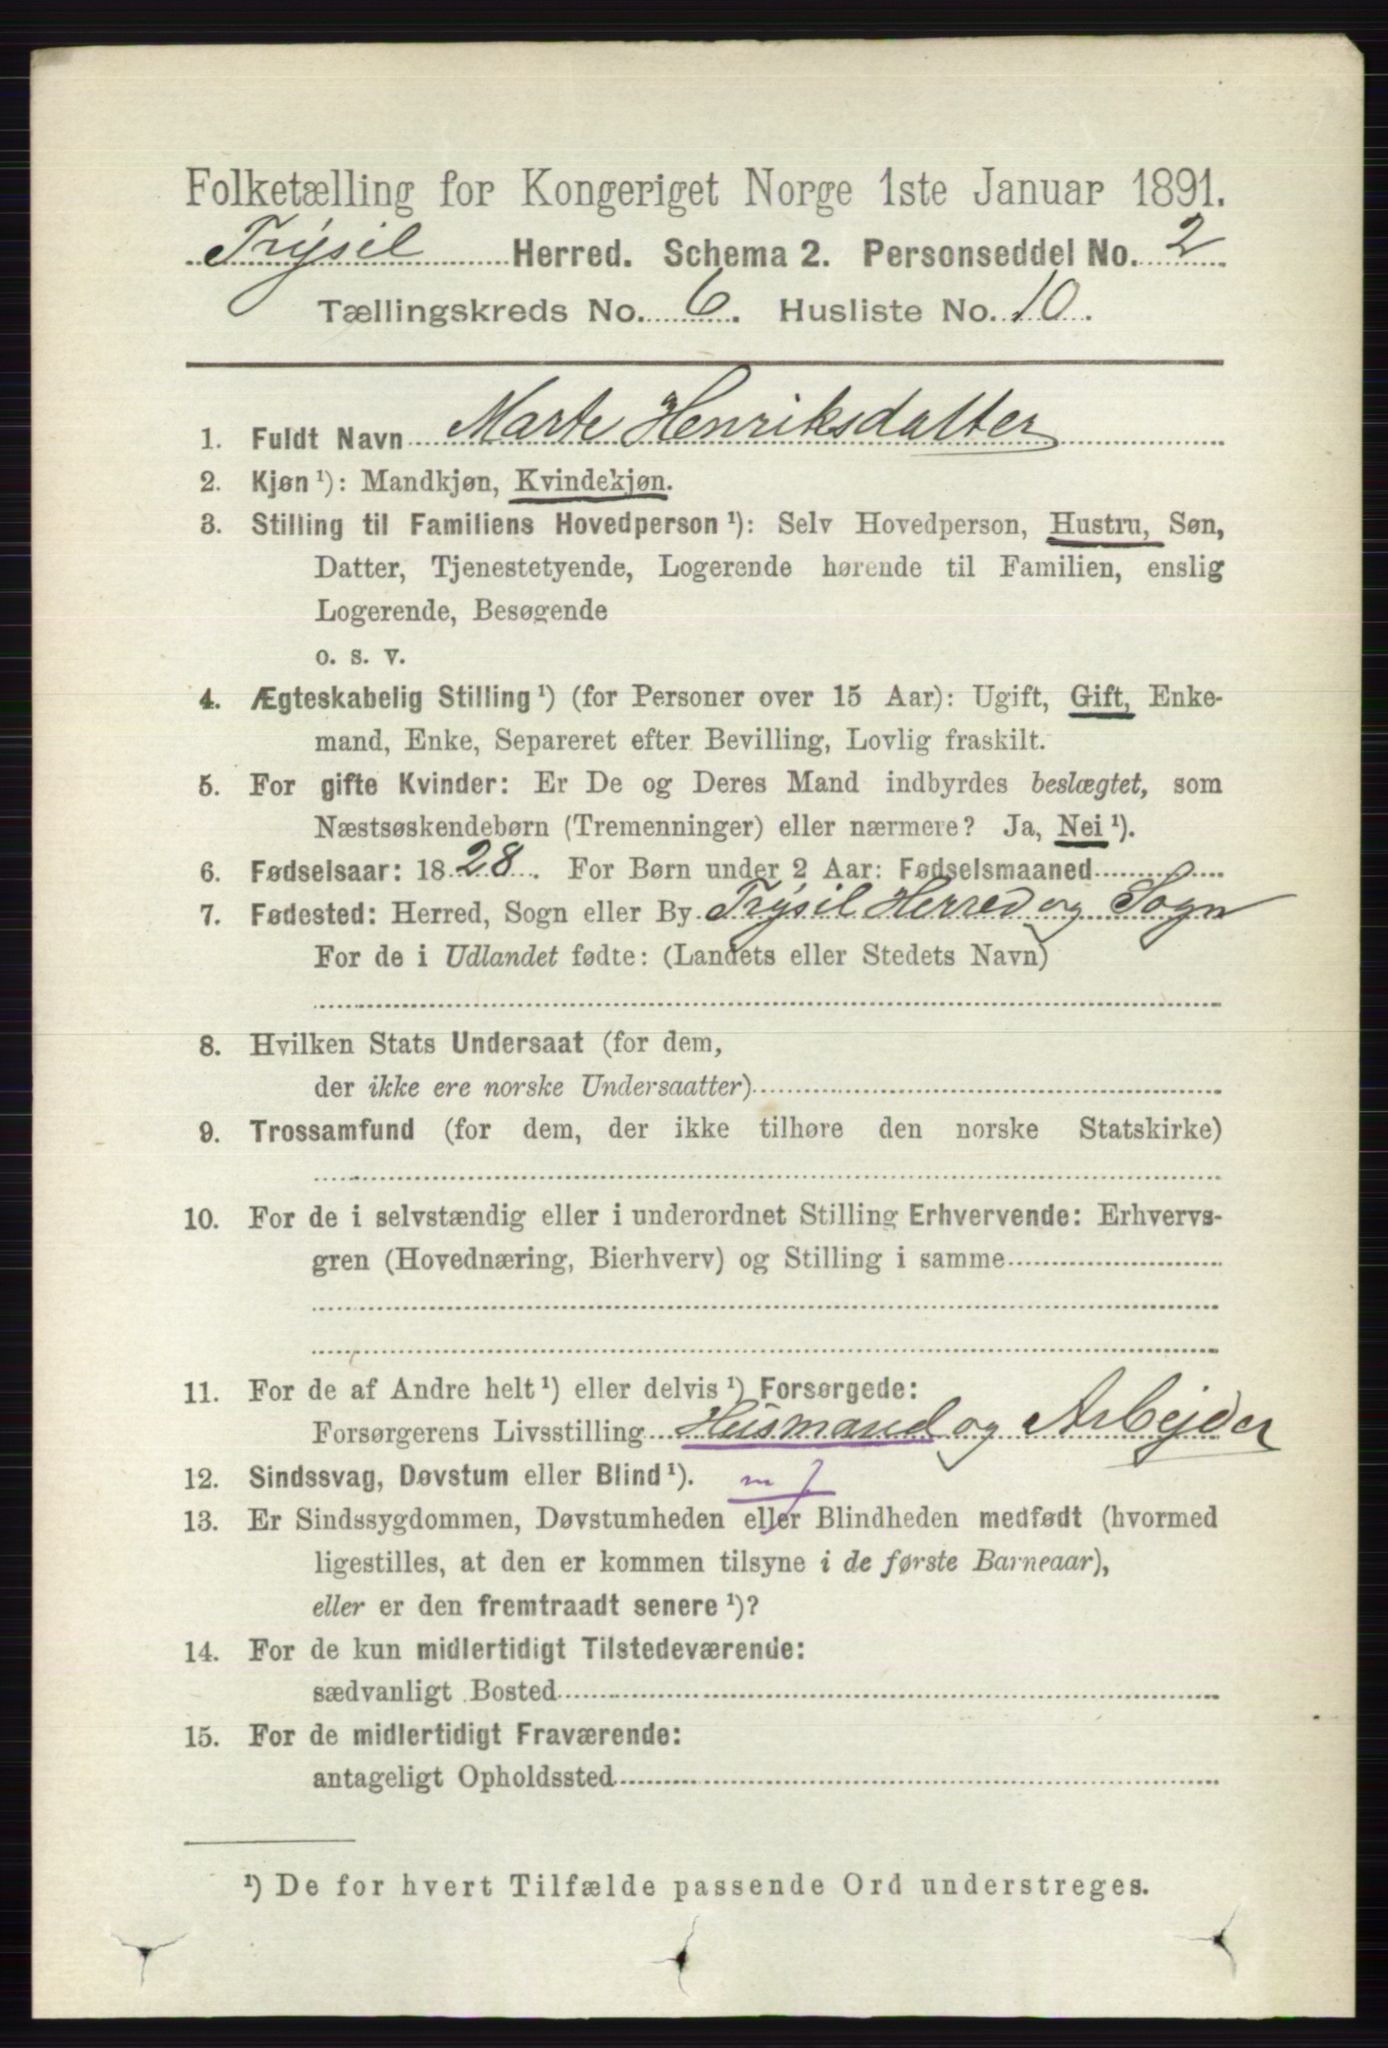 Folketælling for Kongeriget Norge 1ste Januar 1891.
Trysil Herred. Schema 2. Personseddel No. 2
Tællingskreds No. 6. Husliste No. 10.
1. Fuldt Navn Marte Henriksdatter
2. Kjøn ¹): Mandkjøn, Kvindekjøn.
3. Stilling til Familiens Hovedperson ¹): Selv Hovedperson, Hustru, Søn,
Datter, Tjenestetyende, Logerende hørende til Familien, enslig
Logerende, Besøgende
o. s. v.
4. Ægteskabelig Stilling ¹) (for Personer over 15 Aar): Ugift, Gift, Enke-
mand, Enke, Separeret efter Bevilling, Lovlig fraskilt.
5. For gifte Kvinder: Er De og Deres Mand indbyrdes beslægtet, som
Næstsøskendebørn (Tremenninger) eller nærmere? Ja, Nei ¹).
6. Fødselsaar: 1828. For Børn under 2 Aar: Fødselsmaaned
7. Fødested: Herred, Sogn eller By Trysil Herred og Sogn
For de i Udlandet fødte: (Landets eller Stedets Navn)
8. Hvilken Stats Undersaat (for dem,
der ikke ere norske Undersaatter)
9. Trossamfund (for dem, der ikke tilhøre den norske Statskirke)
10. For de i selvstændig eller i underordnet Stilling Erhvervende: Erhvervs-
gren (Hovednæring, Bierhverv) og Stilling i samme
11. For de af Andre helt ¹) eller delvis ¹) Forsørgede:
Forsørgerens Livsstilling Husmand og Arbejder
12. Sindssvag, Døvstum eller Blind ¹).
13. Er Sindssygdommen, Døvstumheden eller Blindheden medfødt (hvormed
ligestilles, at den er kommen tilsyne i de første Barneaar),
eller er den fremtraadt senere ¹)?
14. For de kun midlertidigt Tilstedeværende:
sædvanligt Bosted
15. For de midlertidigt Fraværende:
antageligt Opholdssted
¹) De for hvert Tilfælde passende Ord understreges.